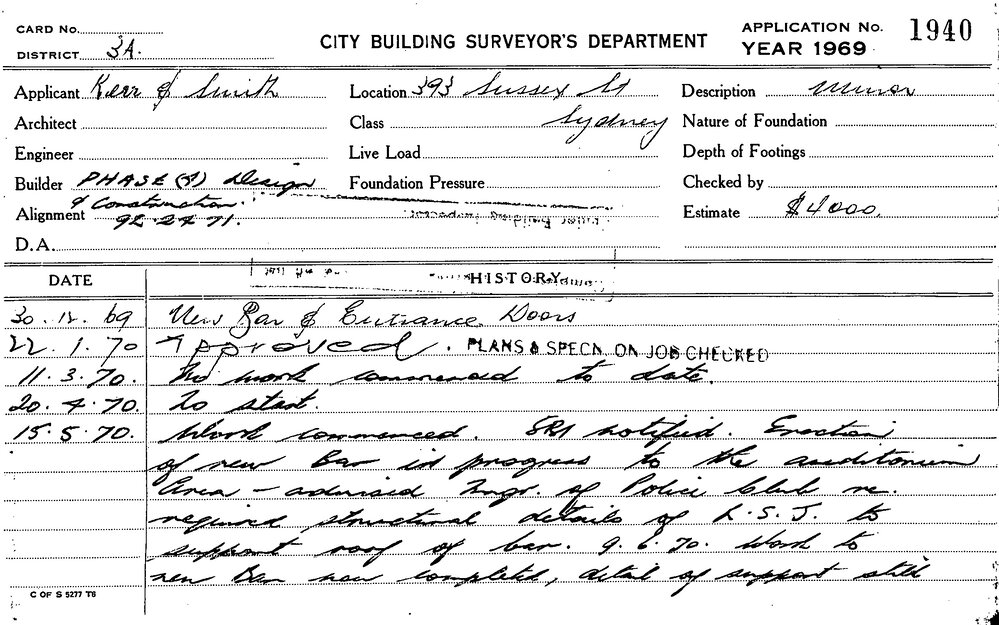 CARD No.
DISTRICT 3A.
CITY BUILDING SURVEYOR'S DEPARTMENT
APPLICATION No. 1940
YEAR 1969
Applicant Kerr & Smith
Location 393 Sussex St
Sydney
Description Minor
Architect
Class
Nature of Foundation
Engineer
Live Load
Depth of Footings
Builder PHASE (3) Design
& Construction.
Foundation Pressure
Checked by
Alignment 92-24 71.
Estimate $4000.
D.A.
DATE HISTORY
30.12.69 New Bar & Entrance Doors
22.1.70 Approved. PLANS & SPECN. ON JOB CHECKED
11.3.70. No work commenced to date.
20.4.70. To start.
15.5.70. Work commenced. notified. Erection
of new Bar in progress to the auditorium
Area - advised Mngr. of Police Club re.
required structural details of R.S.J. to
support roof of bar. 9.6.70. Work to
new Bar now completed, detail of support still
C OF S 5277 T6